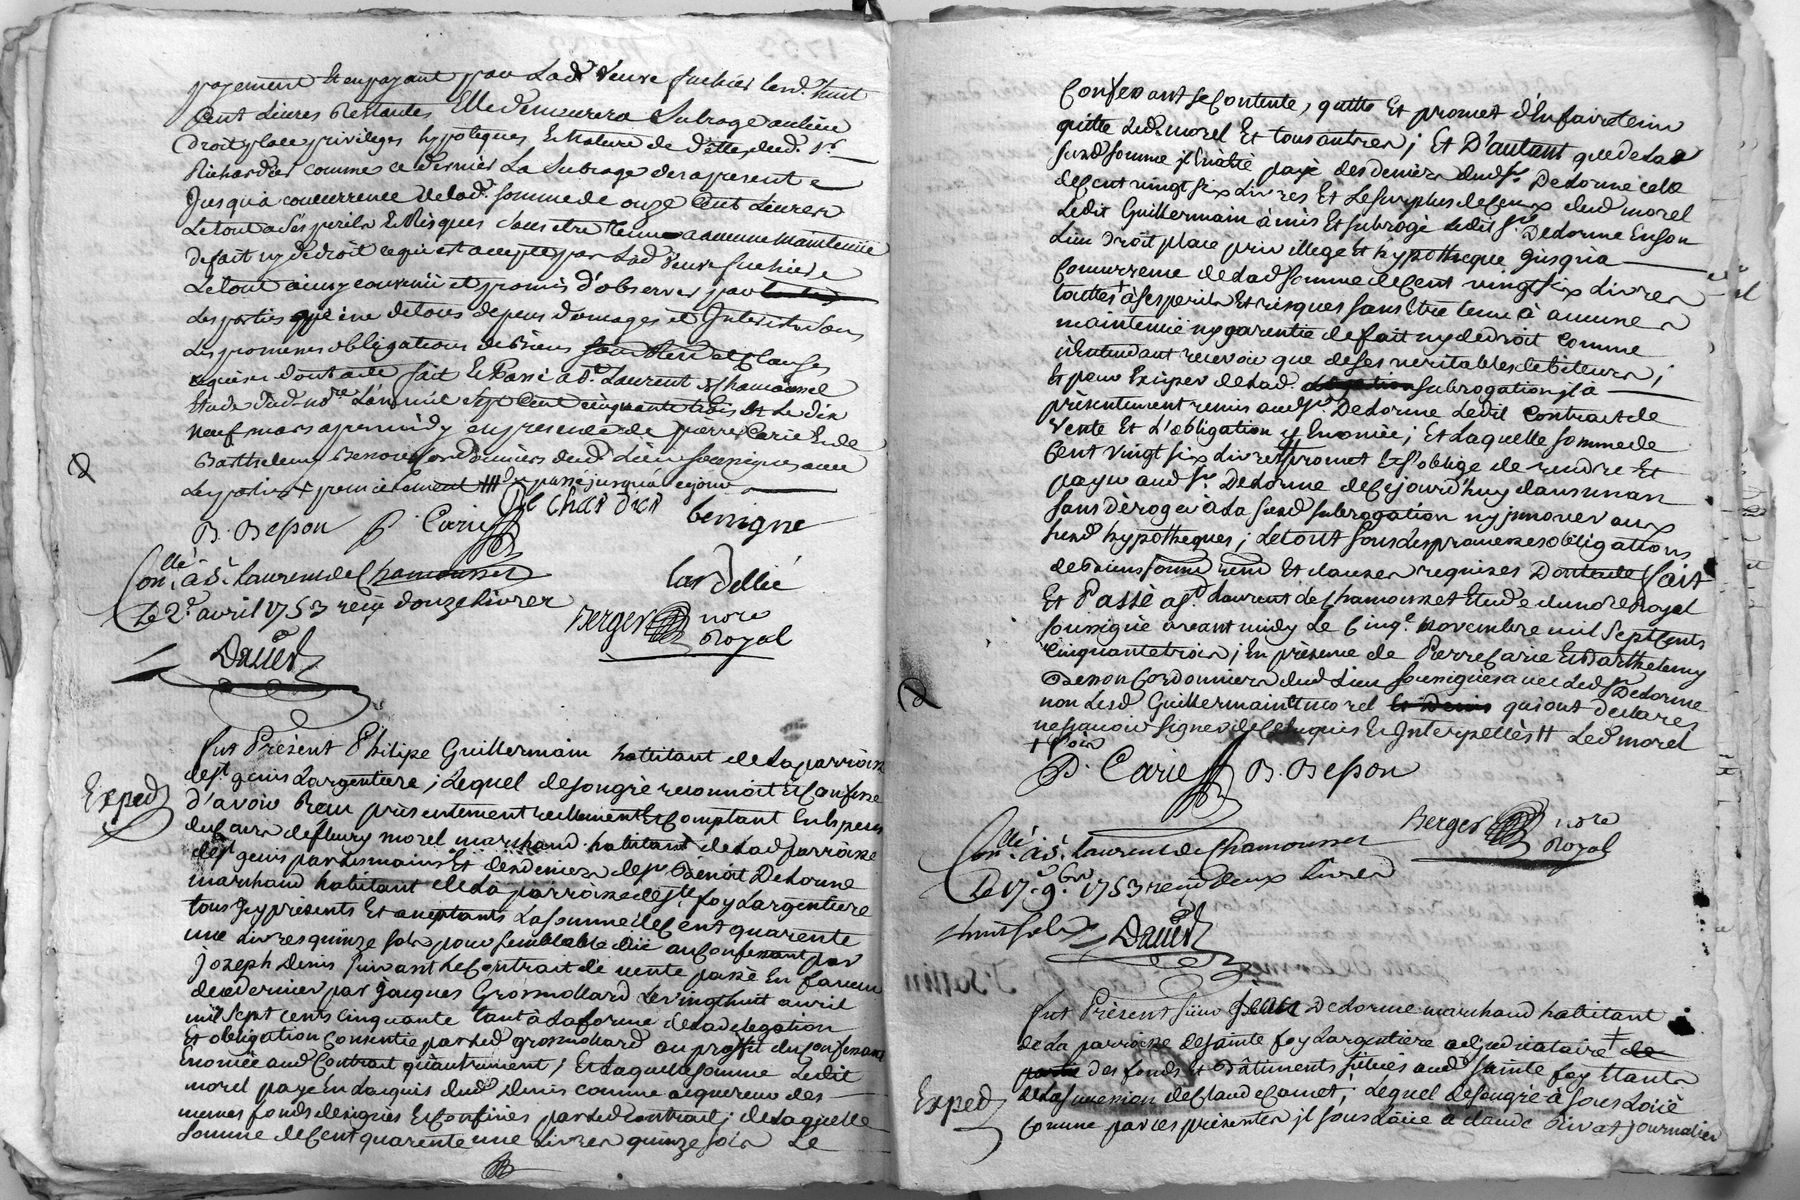 payement Et en payant par Lad. Veuve fuchier lesd. huit
Cent Livres Restantes Elle demeurera Subrogé au lieu
Droit place privileges hypoteques Et Nature de dette, dud. Sr.
Richardier comme ce dernier La Subroge des apresent
Jusqu'à concurrence de lad. somme de onze Cent Livres
Le tout a Ses perils Et Risques Sans etre tenu a aucune Maintenüe
de fait ny de droit ce qui est accepté par Lad Veuve fuchier
Le tout ainsy convenu et promis d'observer par
Les parties a peine de tous depens domages et Interets Sous
Les promesses obligations de Biens et Clauses
requises dont acte fait Et Passé a St. Laurent de Chamousset
Etude dud. nore. L'an mil Sept Cent cinquante trois Et Le dix
Neuf mars apres midy en presence de pierre Carie Et de
Barthelemy Besson Cordonniers dud. Lieu soussignés avec
Les parties passé jusqu'à ce jour
B. Besson P. Carie Richardier benigne
Conllé. à St. Laurent de Chamousset
Le 2e. avril 1753 reçu douze livres
Lardellié
Berger nore
Royal
Dauier
Fut Présent Philipe Guillermain habitant de La parroisse
de St genis Largentiere ; Lequel de son gré reconnoit Et Confesse
Exped
d'avoir Reçu présentement reellement Et Comptant En Especes
du Cours de fleury morel marchand habitant de Lad parroisse
de St genis par Les mains Et des deniers de Sr Benoit Delorme
marchand habitant de La parroisse de Ste. foy Largentiere
tous Icy présents Et aceptants La somme de Cent quarente
une Livres quinze sols pour semblable düe au Confessant par
Jozeph Denis suivant Le Contrait de vente passé En faveur
de ce dernier par Jacques Grosmollard Le vingt huit avril
mil Sept cents cinquante tant à La forme de La delegation
Et obligation Consentie par Led grosmollard au proffit du Confessant
Enoncée aud Contrait qu'autrement ; Et Laquelle somme Ledit
morel paye En L'acquis dud Denis comme aquereur des
memes fonds designés Et Confinés par Led Contrait ; de Laquelle
Somme de Cent quarente une Livres quinze sols Le
Confessant se Contente, quitte Et promet d'En faire tenir
quitte Led. morel Et tous autres ; Et D'autant que de La
susd somme il En a été payé des deniers dud Sr. Delorme celle
de Cent vingt six Livres Et Le surplus de Ceux dud morel
Ledit Guillermain à mis Et subrogé Ledit Sr. Delorme En son
Lieu Droit place privillege Et hypotheque Jusqu'à
Concurrence de Lad somme de Cent vingt six Livres
touttes + à Ses perils Et risques sans Etre tenu à aucune
maintenüe ny garentie de fait ny de droit Comme
n'Entendant recevoir que de ses veritables debiteurs ;
Et pour Exiper de Lad. subrogation il à
présentement remis aud Sr. Delorme Ledit Contrait de
Vente Et L'obligation y Enoncée ; Et Laquelle somme de
Cent vingt six Livres promet Et s'oblige de rendre Et
payer aud Sr. Delorme de Ce jourd'huy dans un an
sans déroger à La susd subrogation ny jnnover aux
susd hypotheques ; Le tout sous Les promesses obligations
de biens soumis rend Et clauses requises Dont acte fait
Et Passé a St. Laurent de Chamousset Etude du nore Royal
soussigné avant midy Le Cinqe. Novembre mil Sept Cents
Cinquante trois ; En présence de Pierre Carie Et Barthelemy
Besson Cordonniers dud Lieu soussignés avec Led Sr. Delorme
non Lesd Guillermain Et morel qui ont declarés
ne sçavoir signer de Ce Enquis Et Interpellés ++ Led morel
P. Carie B. Besson
Conllé. à St. Laurent de Chamousset
Le 17e. 9bre. 1753 reçu deux Livres
huit sols Dauier
Berger nore
Royal
Fut Présent Sieur Jean Delorme marchand habitant
de La parroisse de sainte foy Largentiere adjudicataire + de
des fonds Et Bâtiments situés aud sainte foy Etants
Exped
de La succession de Claude Camet ; Lequel de son gré à sous Loüé
Comme par ces présentes il sous Loüe à Claude Rivat journalier